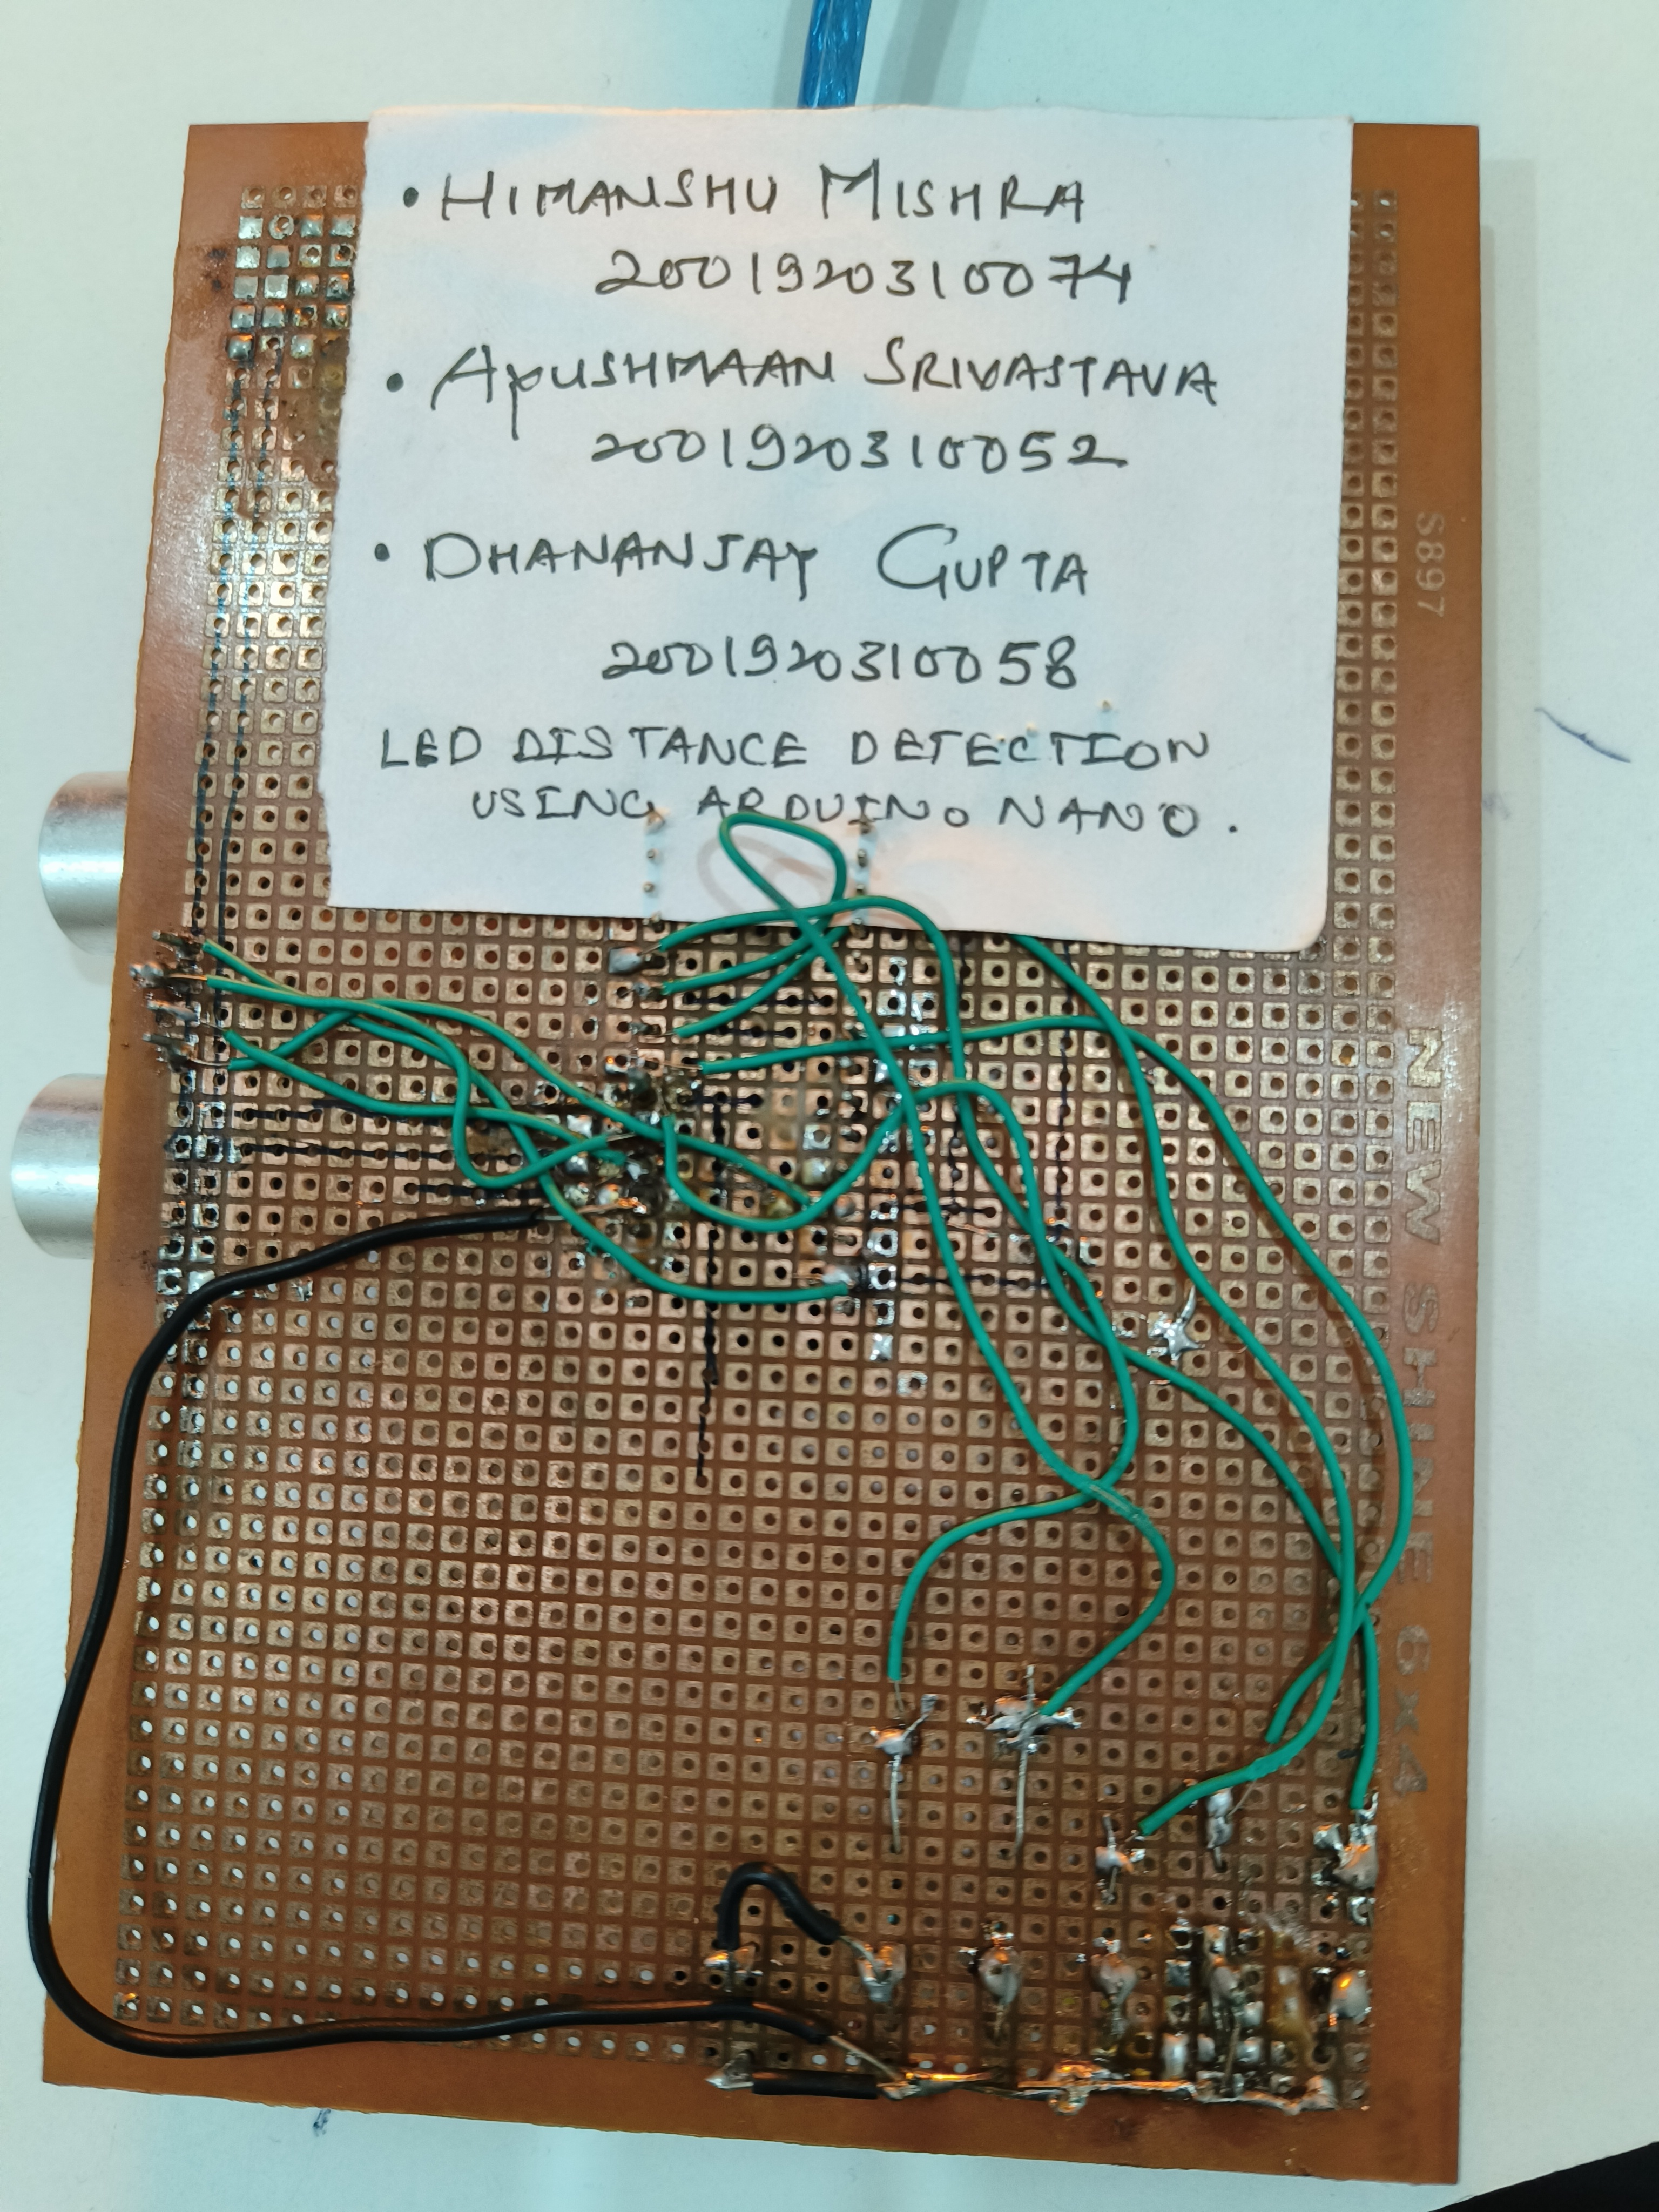 • HIMANSHU MISHRA
2001920310074
• AYUSHMAAN SRIVASTAVA
2001920310052
• DHANANJAY GUPTA
2001920310058
LED DISTANCE DETECTION
USING ARDUINO NANO.
S897
NEW SHINE 6x4